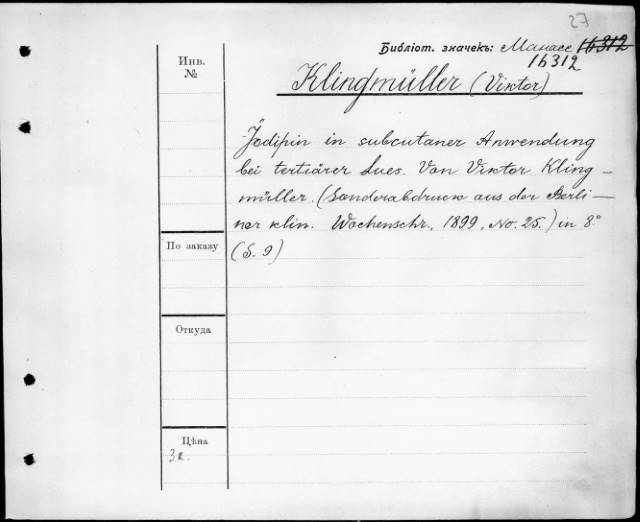 27
Библіот. значекъ: Манассе 16312
16312
Klingmüller (Viktor)
Инв.
№
Jodipin in subcutaner Anwendung
bei tertiärer Lues. Von Viktor Kling-
müller. (Sonderabdruck aus der Berli-
ner klin. Wochenschr., 1899, No. 25.) in 8°
По заказу
(S. 9)
Откуда
Цѣна
3к.